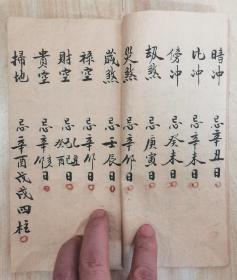 暗冲 忌辛丑日
比冲 忌辛未日
傍冲 忌癸未日
劫煞 忌庚寅日
哭煞 忌辛卯日
歲煞 忌壬辰日
祿空 忌辛卯日
財空 忌日
貴空 忌辛日
掃地 忌辛酉戊戌四柱